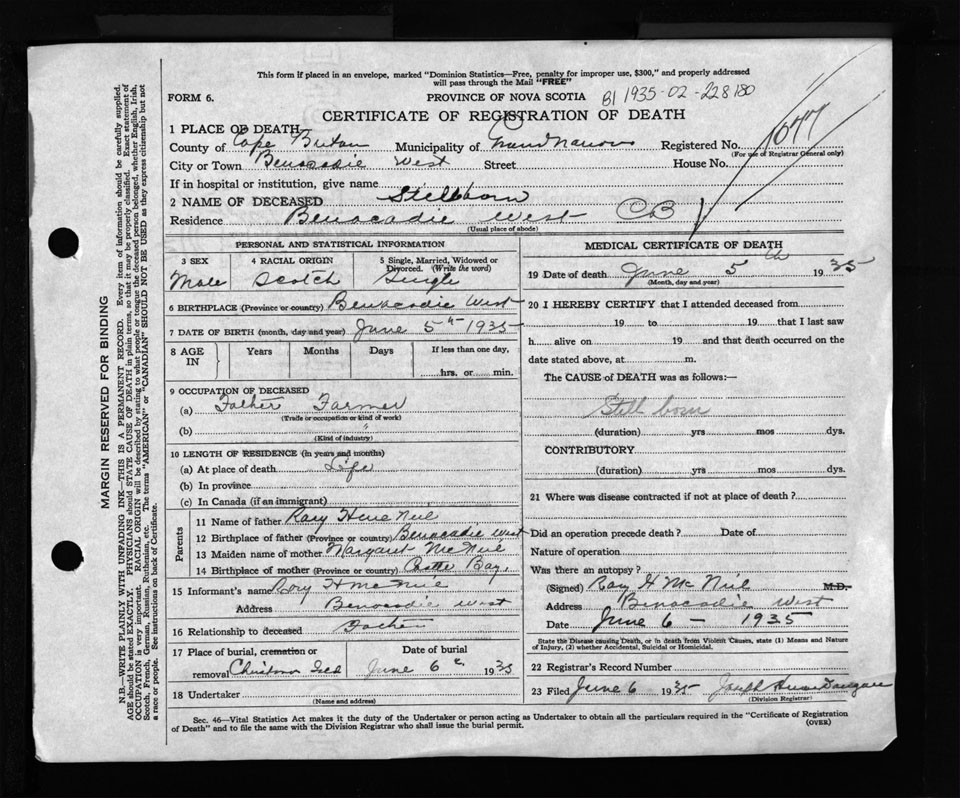 This form if placed in an envelope, marked "Dominion Statistics—Free, penalty for improper use, $300," and properly addressed
will pass through the Mail "FREE"
FORM 6.
PROVINCE OF NOVA SCOTIA
81 1935-02-228180
CERTIFICATE OF REGISTRATION OF DEATH
1077
1 PLACE OF DEATH
County of Cape Breton Municipality of Grand Narrows Registered No.
(For use of Registrar General only)
City or Town Benacadie West Street House No.
If in hospital or institution, give name
2 NAME OF DECEASED Stillborn
Residence Benacadie West CB
(Usual place of abode)
PERSONAL AND STATISTICAL INFORMATION
3 SEX 4 RACIAL ORIGIN 5 Single, Married, Widowed or Divorced. (Write the word)
Male Scotch Single
6 BIRTHPLACE (Province or country) Benacadie West
7 DATE OF BIRTH (month, day and year) June 5th 1935
8 AGE IN Years Months Days If less than one day,
hrs. or min.
9 OCCUPATION OF DECEASED
(a) Father Farmer
(Trade or occupation or kind of work)
(b) "
(Kind of industry)
10 LENGTH OF RESIDENCE (in years and months)
(a) At place of death Life
(b) In province
(c) In Canada (if an immigrant)
Parents
11 Name of father Rory H McNeil
12 Birthplace of father (Province or country) Benacadie West
13 Maiden name of mother Margaret McNeil
14 Birthplace of mother (Province or country) Bay,
15 Informant's name Rory H McNeil
Address Benacadie West
16 Relationship to deceased Father
17 Place of burial, cremation or removal Date of burial
Christmas Isld June 6 1935
18 Undertaker
(Name and address)
MEDICAL CERTIFICATE OF DEATH
19 Date of death June 5th 1935
(Month, day and year)
20 I HEREBY CERTIFY that I attended deceased from
19 to 19 that I last saw
h alive on 19 and that death occurred on the
date stated above, at m.
The CAUSE of DEATH was as follows:—
Still born
(duration) yrs mos dys.
CONTRIBUTORY
(duration) yrs mos dys.
21 Where was disease contracted if not at place of death?
Did an operation precede death? Date of
Nature of operation
Was there an autopsy?
(Signed) Rory H McNeil M.D.
Address Benacadie West
Date June 6 - 1935
State the Disease causing Death, or in death from Violent Causes, state (1) Means and Nature
of Injury, (2) whether Accidental, Suicidal or Homicidal.
22 Registrar's Record Number
23 Filed June 6 1935 Joseph
(Division Registrar)
Sec. 46—Vital Statistics Act makes it the duty of the Undertaker or person acting as Undertaker to obtain all the particulars required in the "Certificate of Registration
of Death" and to file the same with the Division Registrar who shall issue the burial permit.
(OVER)
MARGIN RESERVED FOR BINDING
N.B.—WRITE PLAINLY WITH UNFADING INK—THIS IS A PERMANENT RECORD. Every item of information should be carefully supplied.
AGE should be stated EXACTLY. PHYSICIANS should STATE CAUSE OF DEATH in plain terms, so that it may be properly classified. Exact statement of
OCCUPATION is very important. RACIAL ORIGIN will be described by stating to what people or tongue the deceased person belonged, whether English, Irish,
Scotch, French, German, Russian, Ruthenian, etc. The terms "AMERICAN" or "CANADIAN" SHOULD NOT BE USED as they express citizenship but not
a race or people. See instructions on back of Certificate.